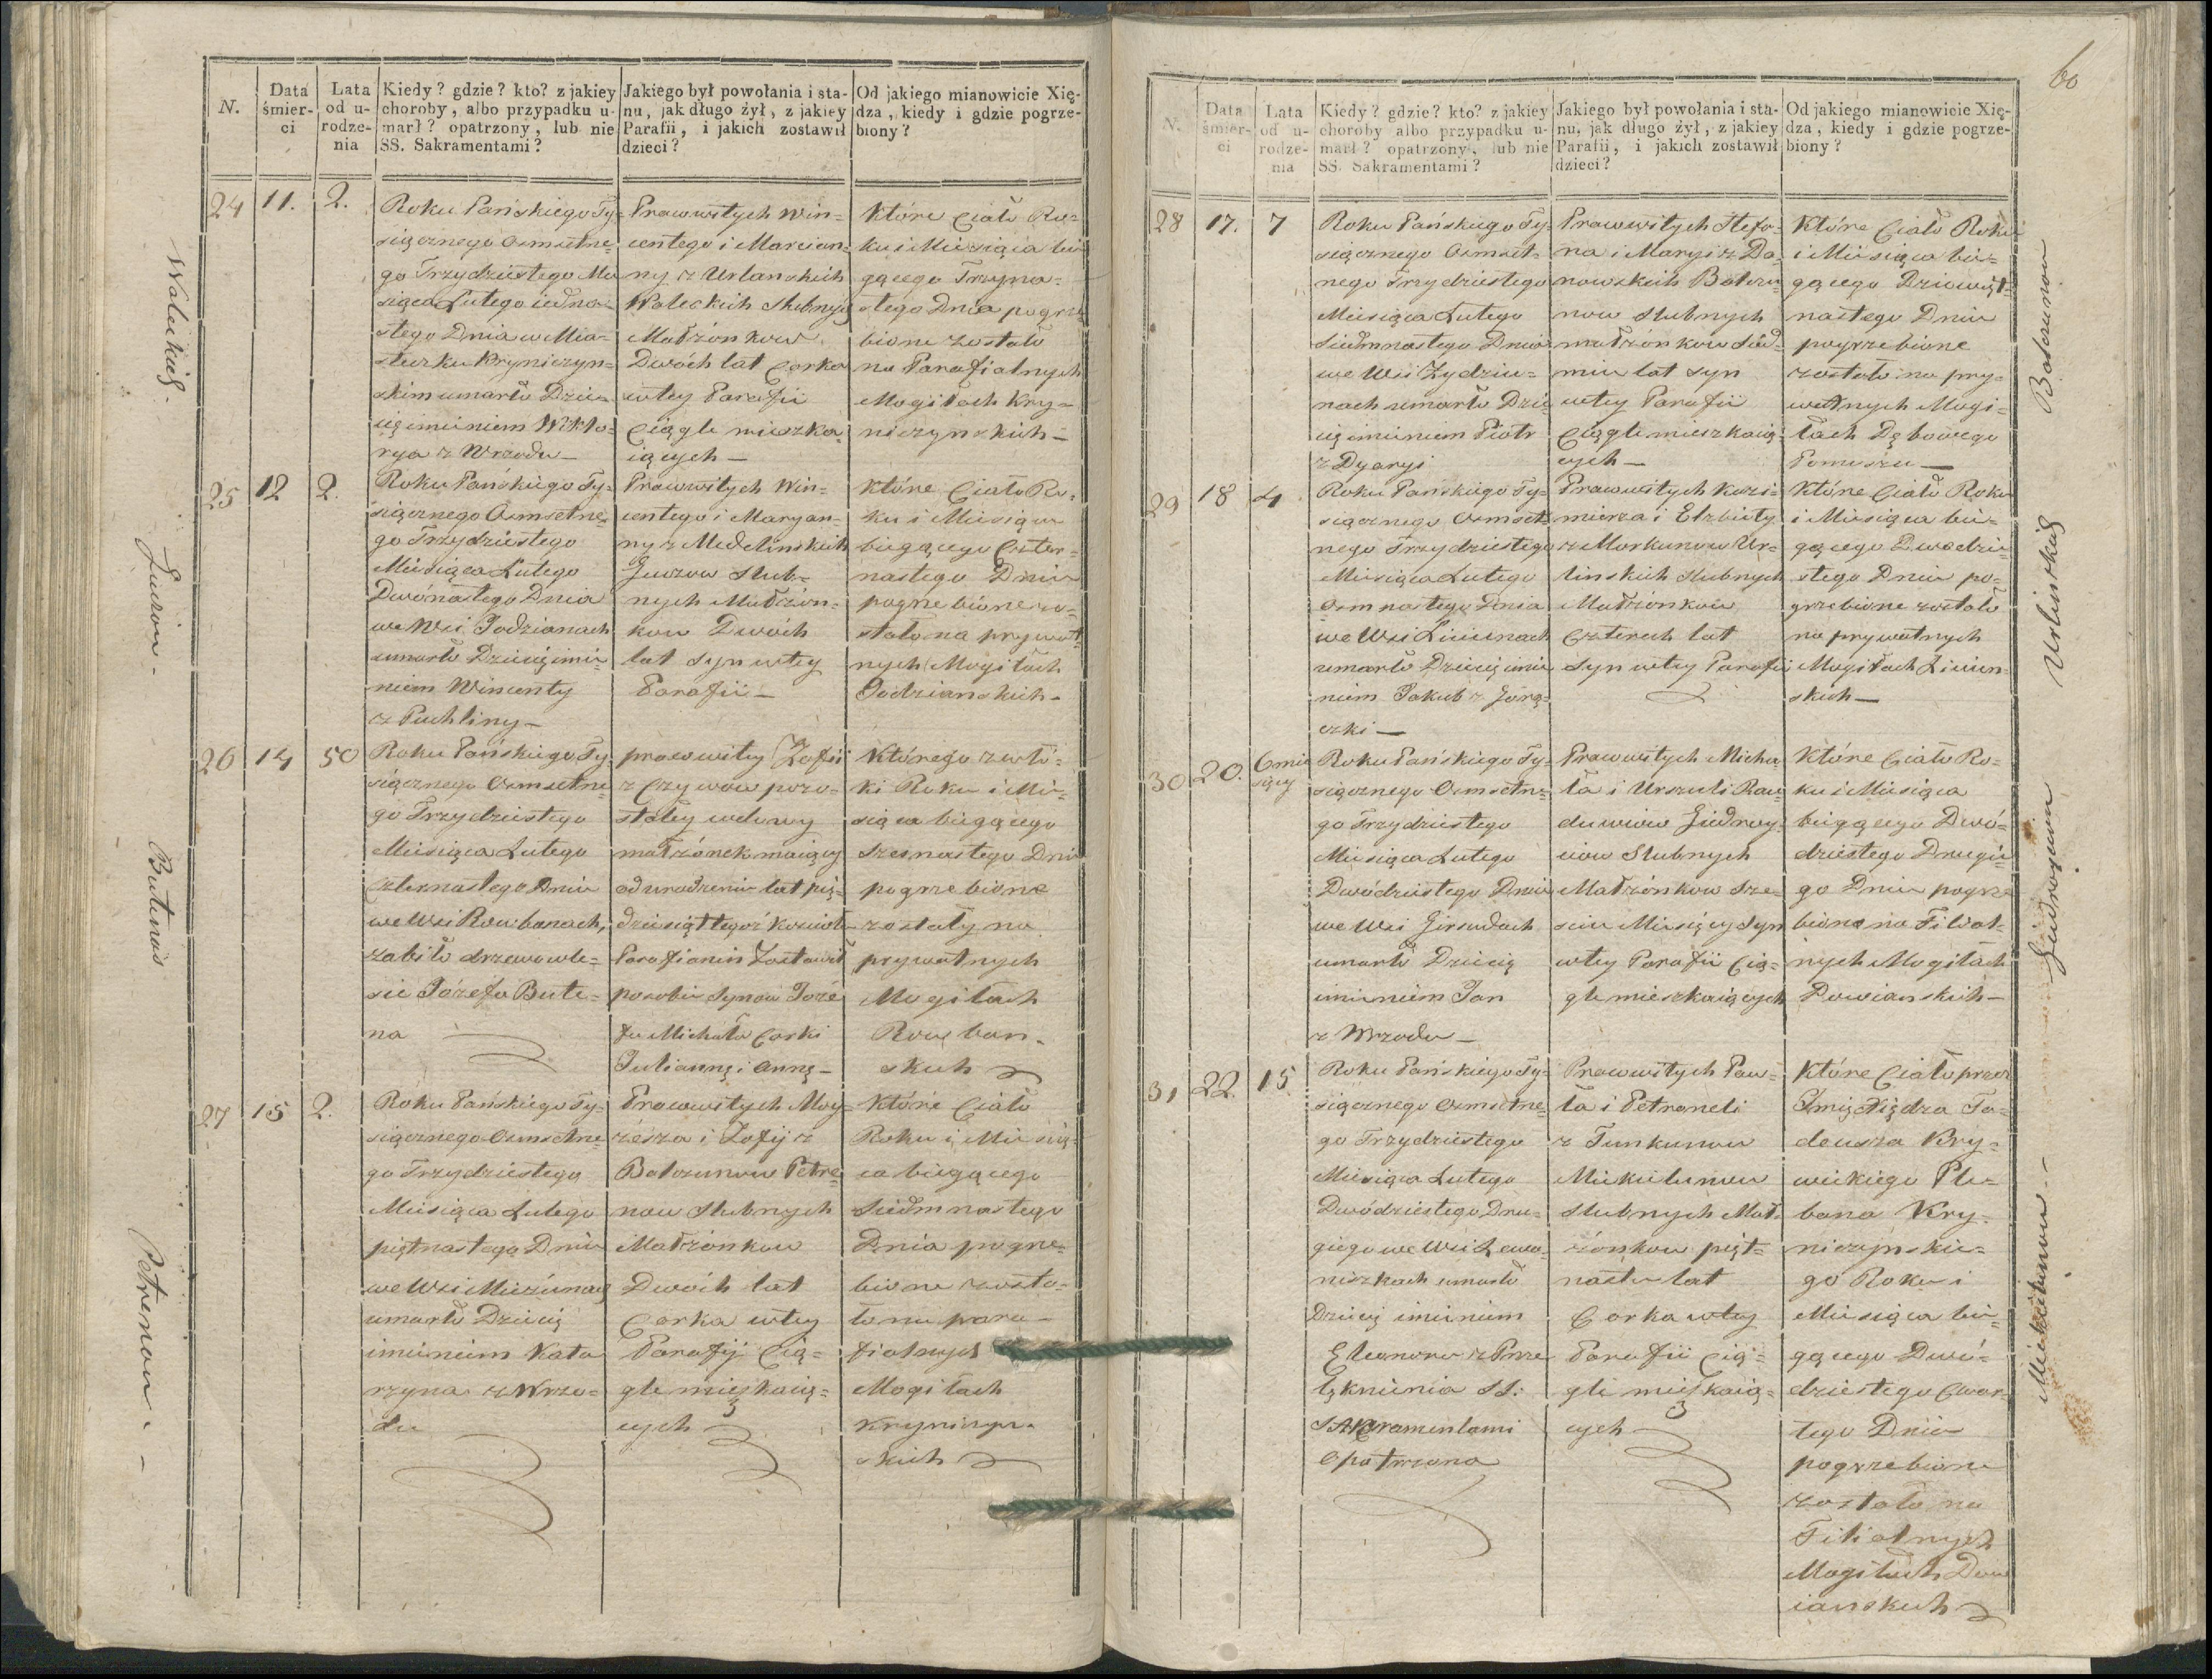 60
N.
Data śmier-ci
Lata od u-rodze-nia
Kiedy? gdzie? kto? z jakiey
choroby, albo przypadku u-
marł? opatrzony, lub nie
SS. Sakramentami?
Jakiego był powołania i sta-
nu, jak długo żył, z jakiey
Parafii, i jakich zostawił
dzieci?
Od jakiego mianowicie Xię-
dza, kiedy i gdzie pogrze-
biony?
Waleckieg.
24
11.
2.
Roku Pańskiego Ty=
siącznego Osmsetne=
go Trzydziestego Mie
siąca Lutego iedna=
stego Dnia w Mia=
steczku Kryniczyn=
skim umarło Dzie=
cię imieniem Wikto=
rya z Wrzodu—
Prawowitych Win=
centego i Marcian=
ny z Urlanskich
Waleckich Slubnych
Małżonkow
Dwóch lat Corka
wtey Parafii
Ciągle mieszka=
iących—
Które Ciało Ro=
ku i Miesiąca bie=
gącego Trzyna=
stego Dnia pogrze
bione zostało
na Parafialnych
Mogiłach Kry=
niczynskich—
Guzow—
25
12
2.
Roku Pańskiego Ty=
siącznego Osmsetne=
go Trzydziestego
Miesiąca Lutego
Dwónastego Dnia
we Wsi Jodzianach
umarło Dziecię imie=
niem Wincenty
z Puchliny—
Prawowitych Win=
centego i Maryan=
ny z Medelinskich
Guzow Slub=
nych Małżon=
kow Dwóch
lat Syn wtey
Parafii—
Które Ciało Ro=
ku i Miesiąca
biegącego Czter=
nastego Dnia
pogrzebione zo=
stało na prywat=
nych Mogiłach
Jodzianskich—
Butenas
26
14
50
Roku Pańskiego Ty=
siącznego Osmsetne=
go Trzydziestego
Miesiąca Lutego
Czternastego Dnia
we Wsi Rowbanach,
zabiło drzewo w le=
sie Józefa Bute=
na
prawowitey Zofii
z Czywow pozo=
stałey wdowy
małżonek maiący
od urodzenia lat pię=
dziesiąt tegoż kosciola
Parafianin Zostawił
po sobie Synow Józe
fa Michała Corki
Juliannę i Annę—
Którego zwło=
ki Roku i Mie=
siąca biegącego
Szesnastego Dnia
pogrzebione
zostały na
prywatnych
Mogiłach
Rowban=
skich
Petrenow.
27
15
2.
Roku Pańskiego Ty=
siącznego Osmsetne
go Trzydziestego
Miesiąca Lutego
piętnastego Dnia
we Wsi Mieżunach
umarło Dziecię
imieniem Kata
rzyna z Wrzo=
du
Prawowitych Moy=
żesza i Zofij z
Balczunow Petre=
now Slubnych
Małżonkow
Dwóch lat
Corka wtey
Parafij Cią=
gle mieszkaią=
cych
Które Ciało
Roku i Miesią=
ca biegącego
Siedmnastego
Dnia pogrze=
bione zosta=
ło na para=
fialnych
Mogiłach
Kryniczyn=
skich
N.
Data śmier-ci
Lata od u-rodze-nia
Kiedy? gdzie? kto? z jakiey
choroby albo przypadku u-
marł? opatrzony, lub nie
SS. Sakramentami?
Jakiego był powołania i sta-
nu, jak długo żył, z jakiey
Parafii, i jakich zostawił
dzieci?
Od jakiego mianowicie Xię-
dza, kiedy i gdzie pogrze-
biony?
28
17.
7
Roku Pańskiego Ty=
siącznego Osmset=
nego Trzydziestego
Miesiąca Lutego
Siedmnastego Dnia
we Wsi Zydziu=
nach umarło Dzie
cię imieniem Piotr
z Dyaryi
Prawowitych Stefa=
na i Maryi z Da=
nowskich Balczu=
now Slubnych
małżonkow Sied=
miu lat Syn
wtey Parafii
Ciągle mieszkaią
cych—
Które Ciało Roku
i Miesiąca bie=
gącego Dziewięt=
nastego Dnia
pogrzebione
zostało na pry=
watnych Mogi=
łach Dębowego
Pomuszu—
Balczunow
29
18
4
Roku Pańskiego Ty=
siącznego Osmset=
nego Trzydziestego
Miesiąca Lutego
Osmnastego Dnia
we Wsi Liciunach
umarło Dziecię imie
niem Jakub z Gorą=
czki—
Prawowitych Kazi=
mierza i Elzbiety
z Markunow Ur=
linskich Slubnych
Małżonkow
Czterech lat
Syn wtey Parafii
Które Ciało Roku
i Miesiąca bie=
gącego Dwadzie=
stego Dnia po=
grzebione zostało
na prywatnych
Mogiłach Liciun=
skich—
Urlinskieg
30
20.
6 mie
sięcy
Roku Pańskiego Ty=
siącznego Osmsetne=
go Trzydziestego
Miesiąca Lutego
Dwódziestego Dnia
we Wsi Girsudach
umarło Dziecię
imieniem Jan
z Wrzodu—
Prawowitych Micha
ła i Urszuli Rau=
duwiow Giedroy=
ciow Slubnych
Małżonkow Sze=
sciu Miesięcy Syn
wtey Parafii Cią=
gle mieszkaiących
Które Ciało Ro=
ku i Miesiąca
biegącego Dwó=
dziestego Drugie=
go Dnia pogrze
bione na Filial=
nych Mogiłach
Dowianskich—
Giedroyciow
31
22.
15
Roku Pańskiego Ty=
siącznego Osmsetne=
go Trzydziestego
Miesiąca Lutego
Dwódziestego Dru=
giego we Wsi Lewa=
niszkach umarło
Dziecię imieniem
Eleonora z Prze
lęknienia SS:
SAKramentami
Opatrzona
Prawowitych Paw=
ła i Petroneli
z Tunkunow
Mickilunow
Slubnych Mał=
żonkow pięt=
nastu lat
Corka wtey
Parafii Cią=
gle mieszkaią=
cych
Które Ciało przez
Jmię Xiędza Ta=
deusza Kry=
wickiego Ple=
bana Kry=
niczynskie=
go Roku i
Miesiąca bie=
gącego Dwó=
dziestego Czwar
tego Dnia
pogrzebione
zostało na
Filialnych
Mogiłach Dow
ianskich
Mickilunow—